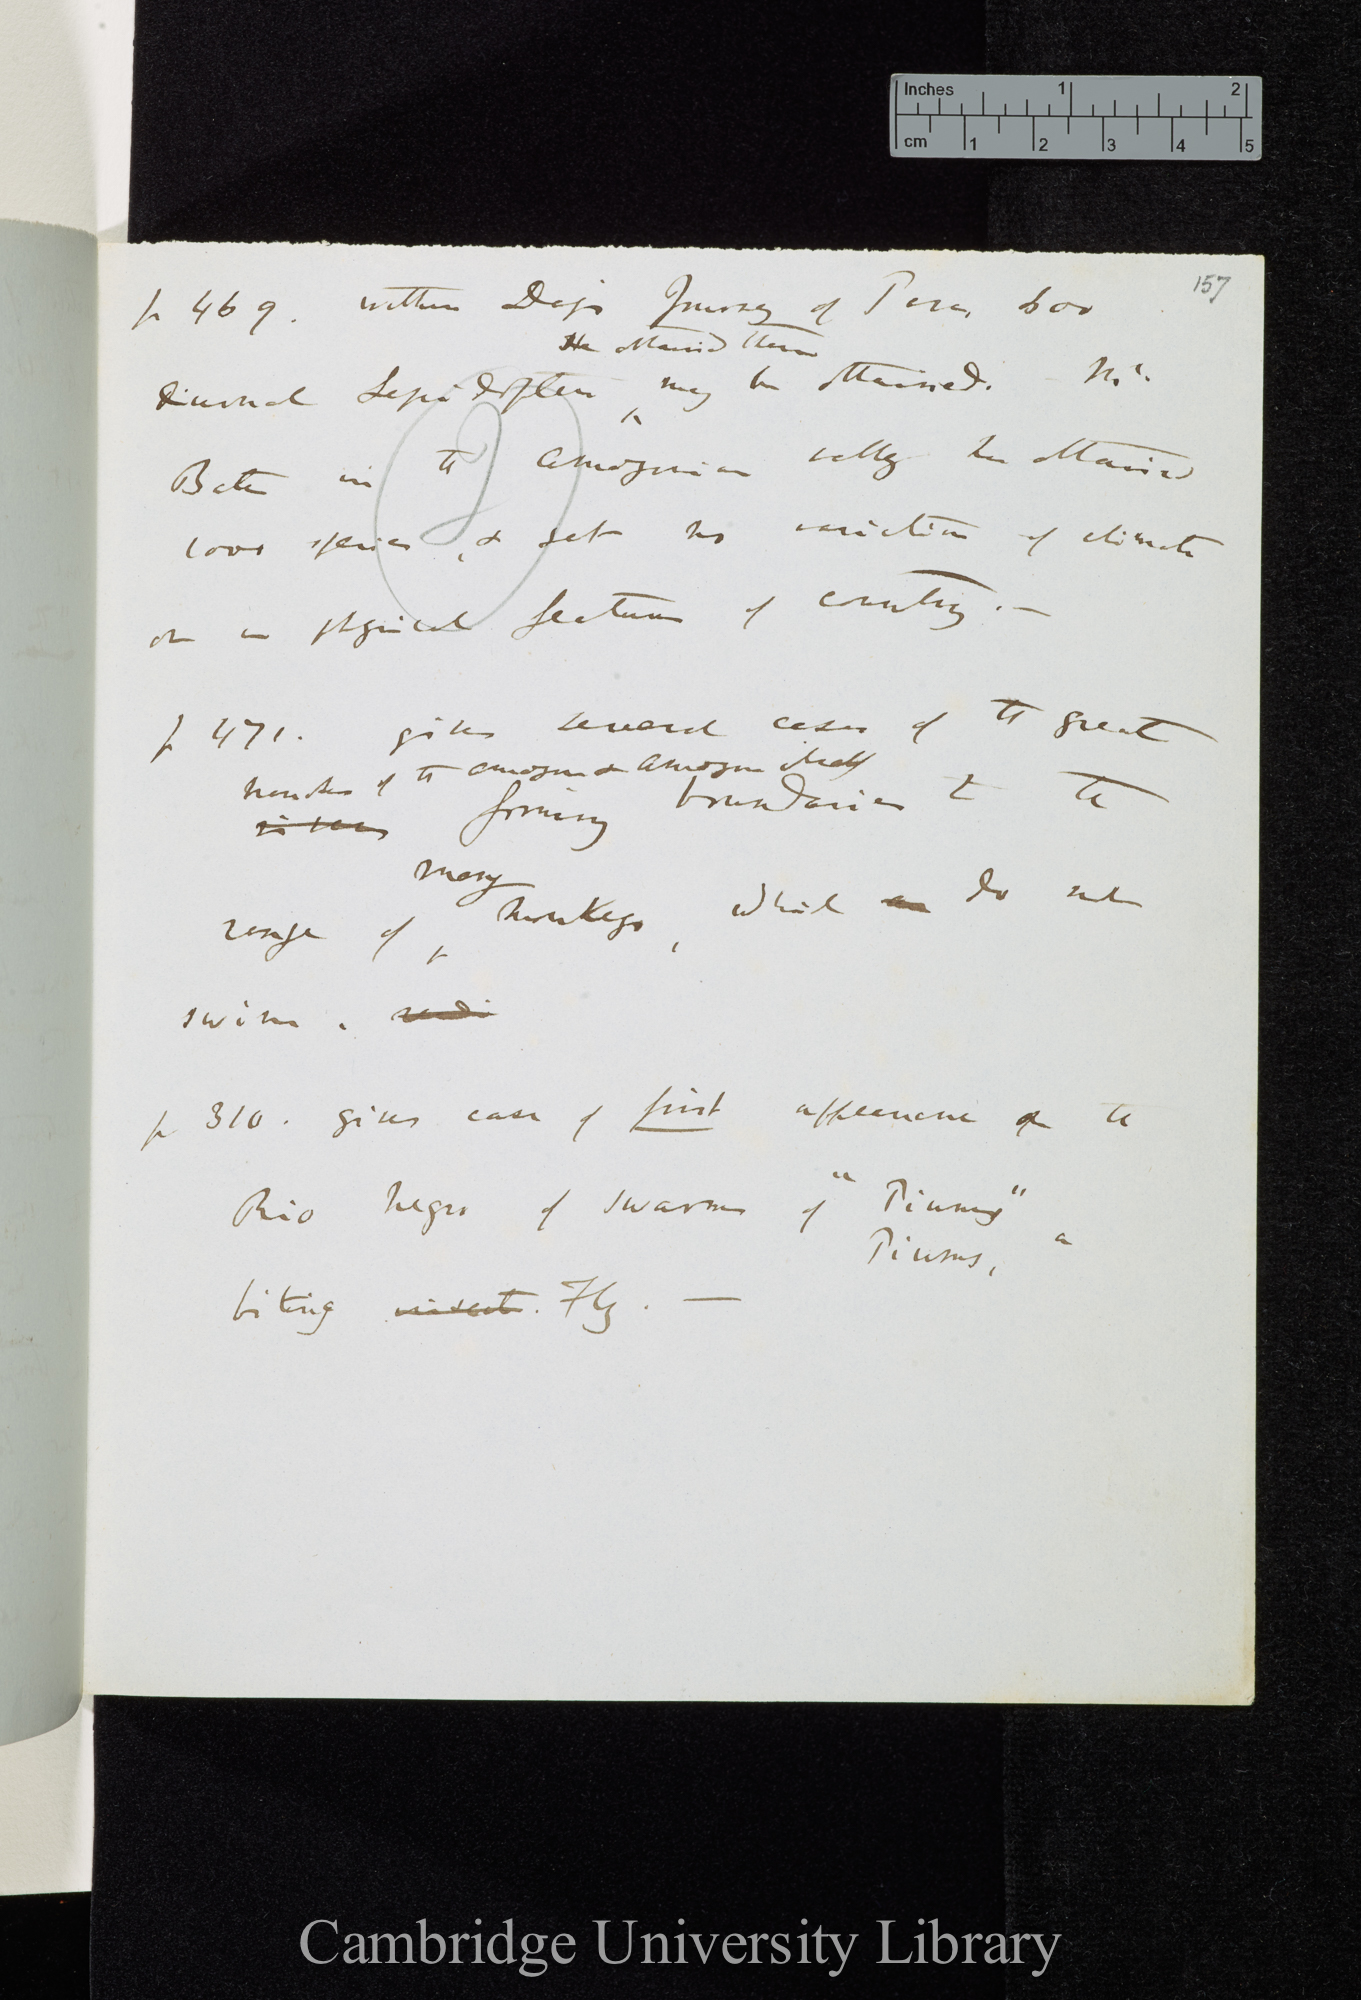 Inches 1 2
cm 1 2 3 4 5
157
p 469. within Days Journey of Para, 600
He obtained them
diurnal Lepidoptera may be obtained. Mr.
Bates in the Amazonian valley has obtained
1000 species, & yet no variation of climate
or in physical features of country. —
p 471. gives several cases of the great
branches of the Amazon & Amazon itself
rivers forming boundaries to the
many
range of monkeys, which do not
swim.
p 310. gives case of first appearance on the
Rio Negro of swarms of "Piums"
Piums, a
biting insect. Fly. —
Cambridge University Library